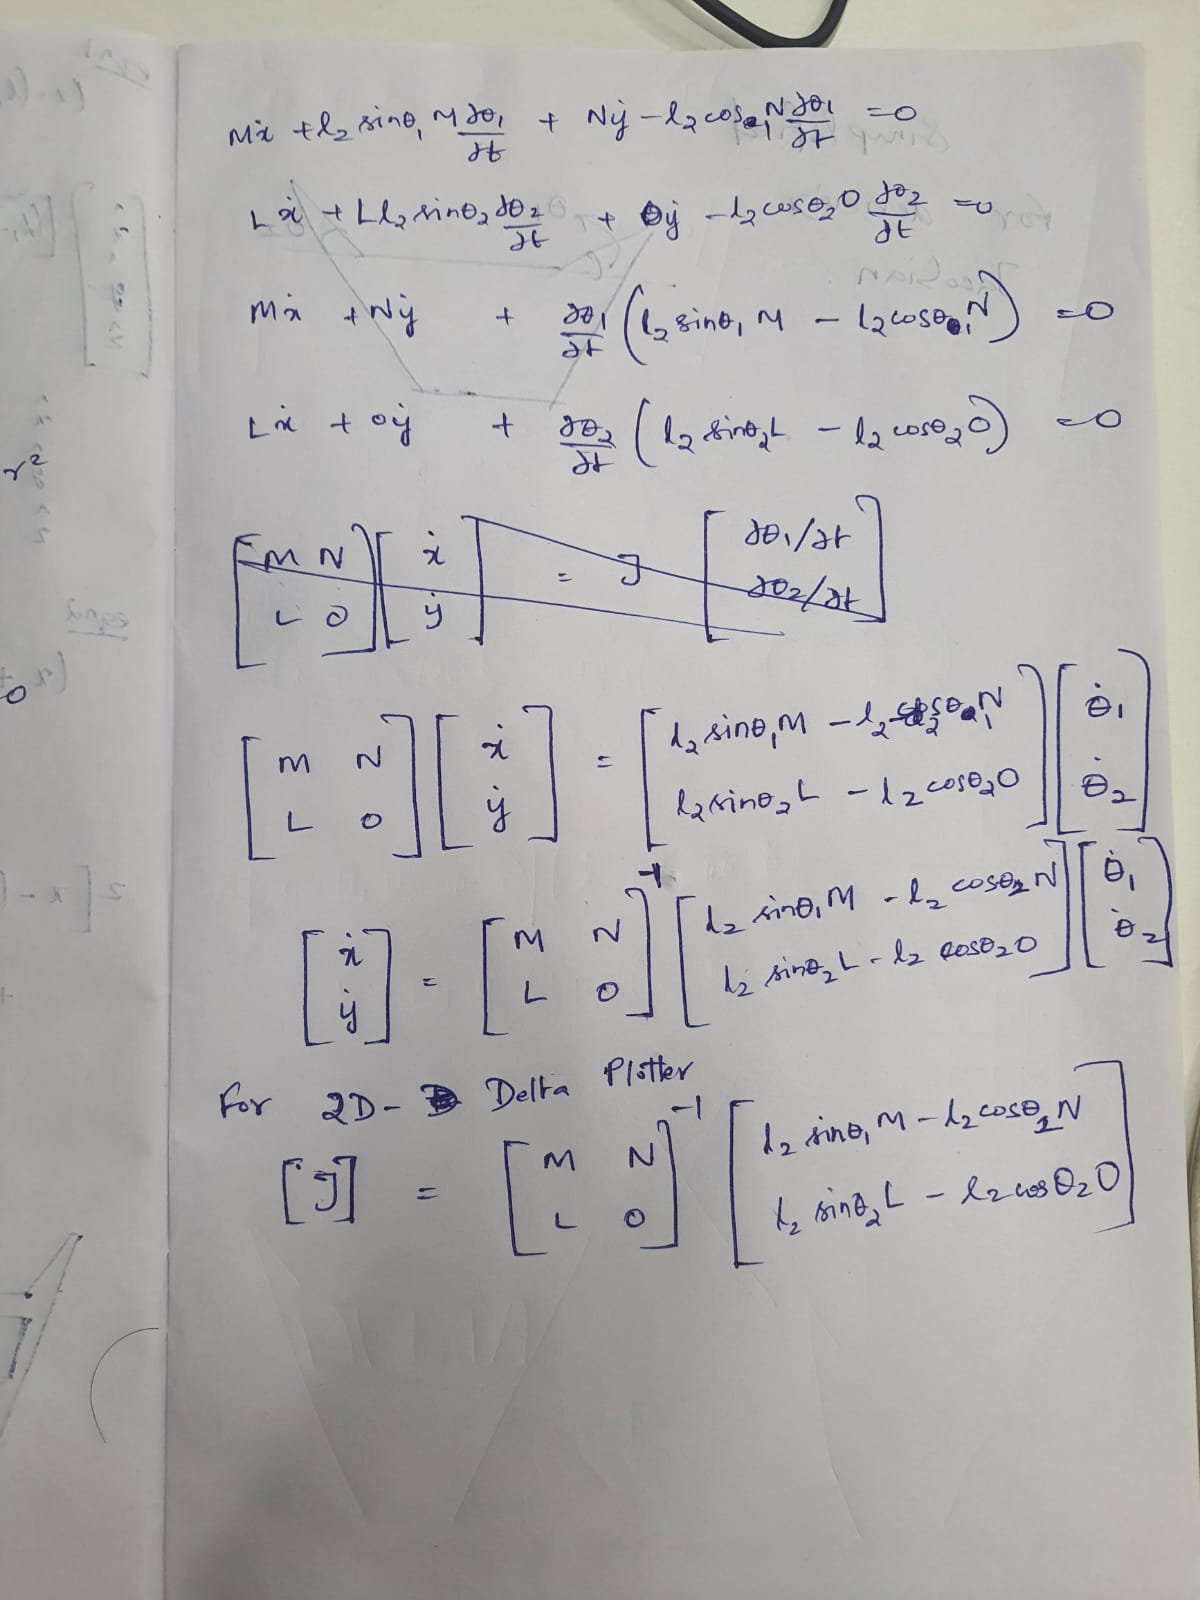 Mẋ + l₂ sinθ₁ M ∂θ₁/∂t + Nẏ − l₂ cosθ₁ N ∂θ₁/∂t = 0
Lẋ + Ll₂ sinθ₂ ∂θ₂/∂t + Oẏ − l₂ cosθ₂ O ∂θ₂/∂t = 0
Mẋ + Nẏ + ∂θ₁/∂t (l₂ sinθ₁ M − l₂ cosθ₁ N) = 0
Lẋ + Oẏ + ∂θ₂/∂t (l₂ sinθ₂ L − l₂ cosθ₂ O) = 0
[M N; L O] [ẋ; ẏ] = J [∂θ₁/∂t; ∂θ₂/∂t]
[M N; L O] [ẋ; ẏ] = [l₂ sinθ₁ M − l₂ cosθ₁ N; l₂ sinθ₂ L − l₂ cosθ₂ O] [θ̇₁; θ̇₂]
[ẋ; ẏ] = [M N; L O]⁻¹ [l₂ sinθ₁ M − l₂ cosθ₂ N; l₂ sinθ₂ L − l₂ cosθ₂ O] [θ̇₁; θ̇₂]
For 2D- Delta Plotter
[J] = [M N; L O]⁻¹ [l₂ sinθ₁ M − l₂ cosθ₁ N; l₂ sinθ₂ L − l₂ cosθ₂ O]